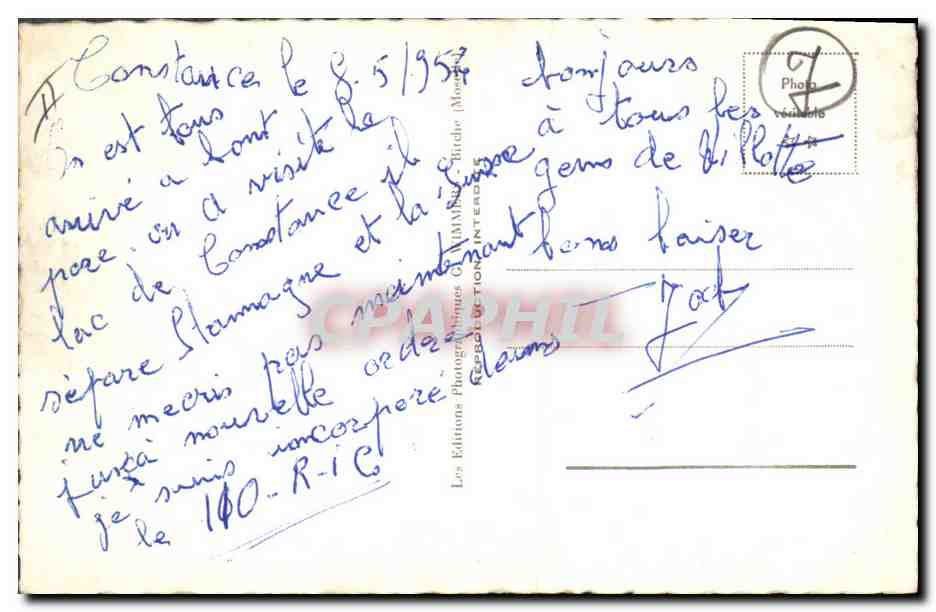 II
Constance le 8.5/1954
On est tous
arrivé a bont
pore on a visité le
lac de Constance il
sépare l'lamagne et la suisse
ne mecris pas maintenant
jusca nouvelle ordre
je suis incorporé dans
le 110-R-IC
toujours
à tous les
gens de Villotte
bons baiser
Jack
J
Photo
véritable
Les Editions Photographiques G. WIMMER - Bitche (Moselle)
REPRODUCTION INTERDITE
CPAPHIL